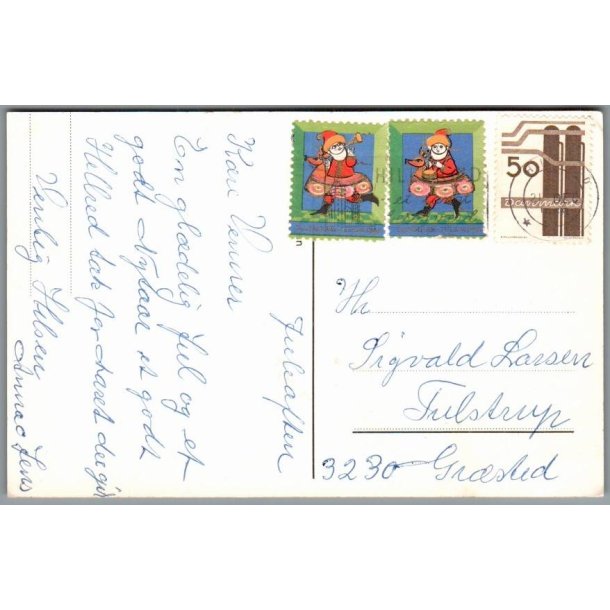 Juleaften
Kære Venner
En glædelig Jul og et
godt Nytaar et godt
Helbred tak for aaret der gik
Venlig Hilsen
Anna Jens
50
Danmark
Hr
Sigvald Larsen
Tulstrup
3230 Græsted